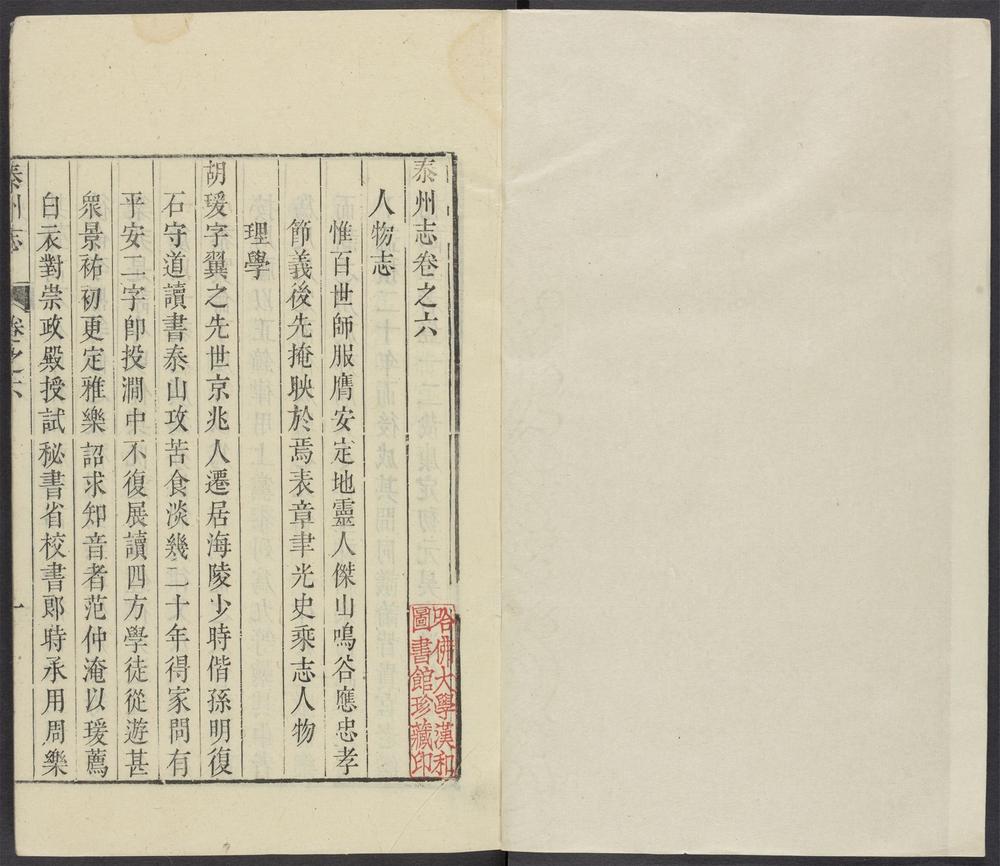 泰州志卷之六
人物志
惟百世師服膺安定地靈人傑山鳴谷應忠孝
節義後先掩映於焉表章聿光史乘志人物
理學
胡瑗字翼之先世京兆人遷居海陵少時偕孫明復
石守道讀書泰山攻苦食淡幾二十年得家問有
平安二字卽投澗中不復展讀四方學徒從遊甚
衆景祐初更定雅樂詔求知音者范仲淹以瑗薦
白衣對崇政殿授試秘書省校書郞時承用周樂
泰州志 卷之六 一
哈佛大學漢和
圖書館珍藏印